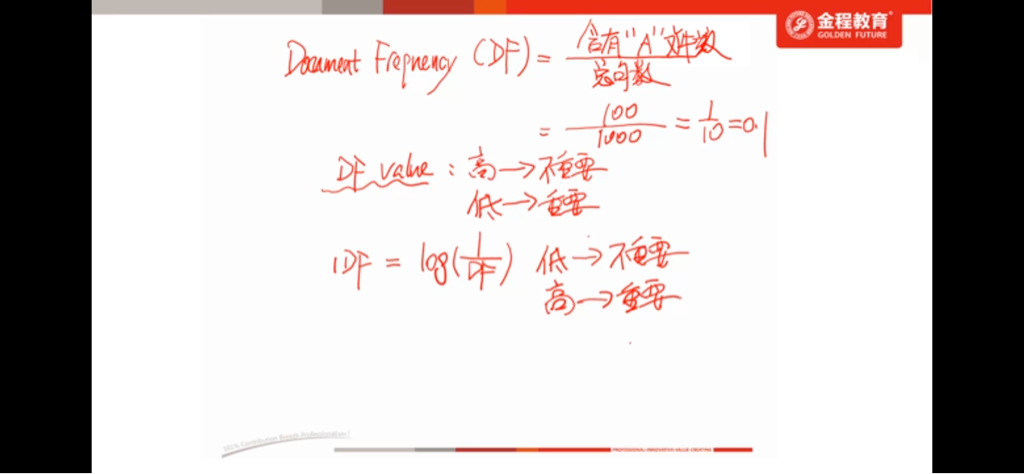 金程教育
GOLDEN FUTURE
Document Frequency (DF) = 含有"A"文件数
总句数
= 100/1000 = 1/10 = 0.1
DF value : 高→不重要
低→重要
IDF = log(1/DF) 低→不重要
高→重要
101% Contribution Breeds Professionalism!
PROFESSIONAL·INNOVATIVE·VALUE CREATING